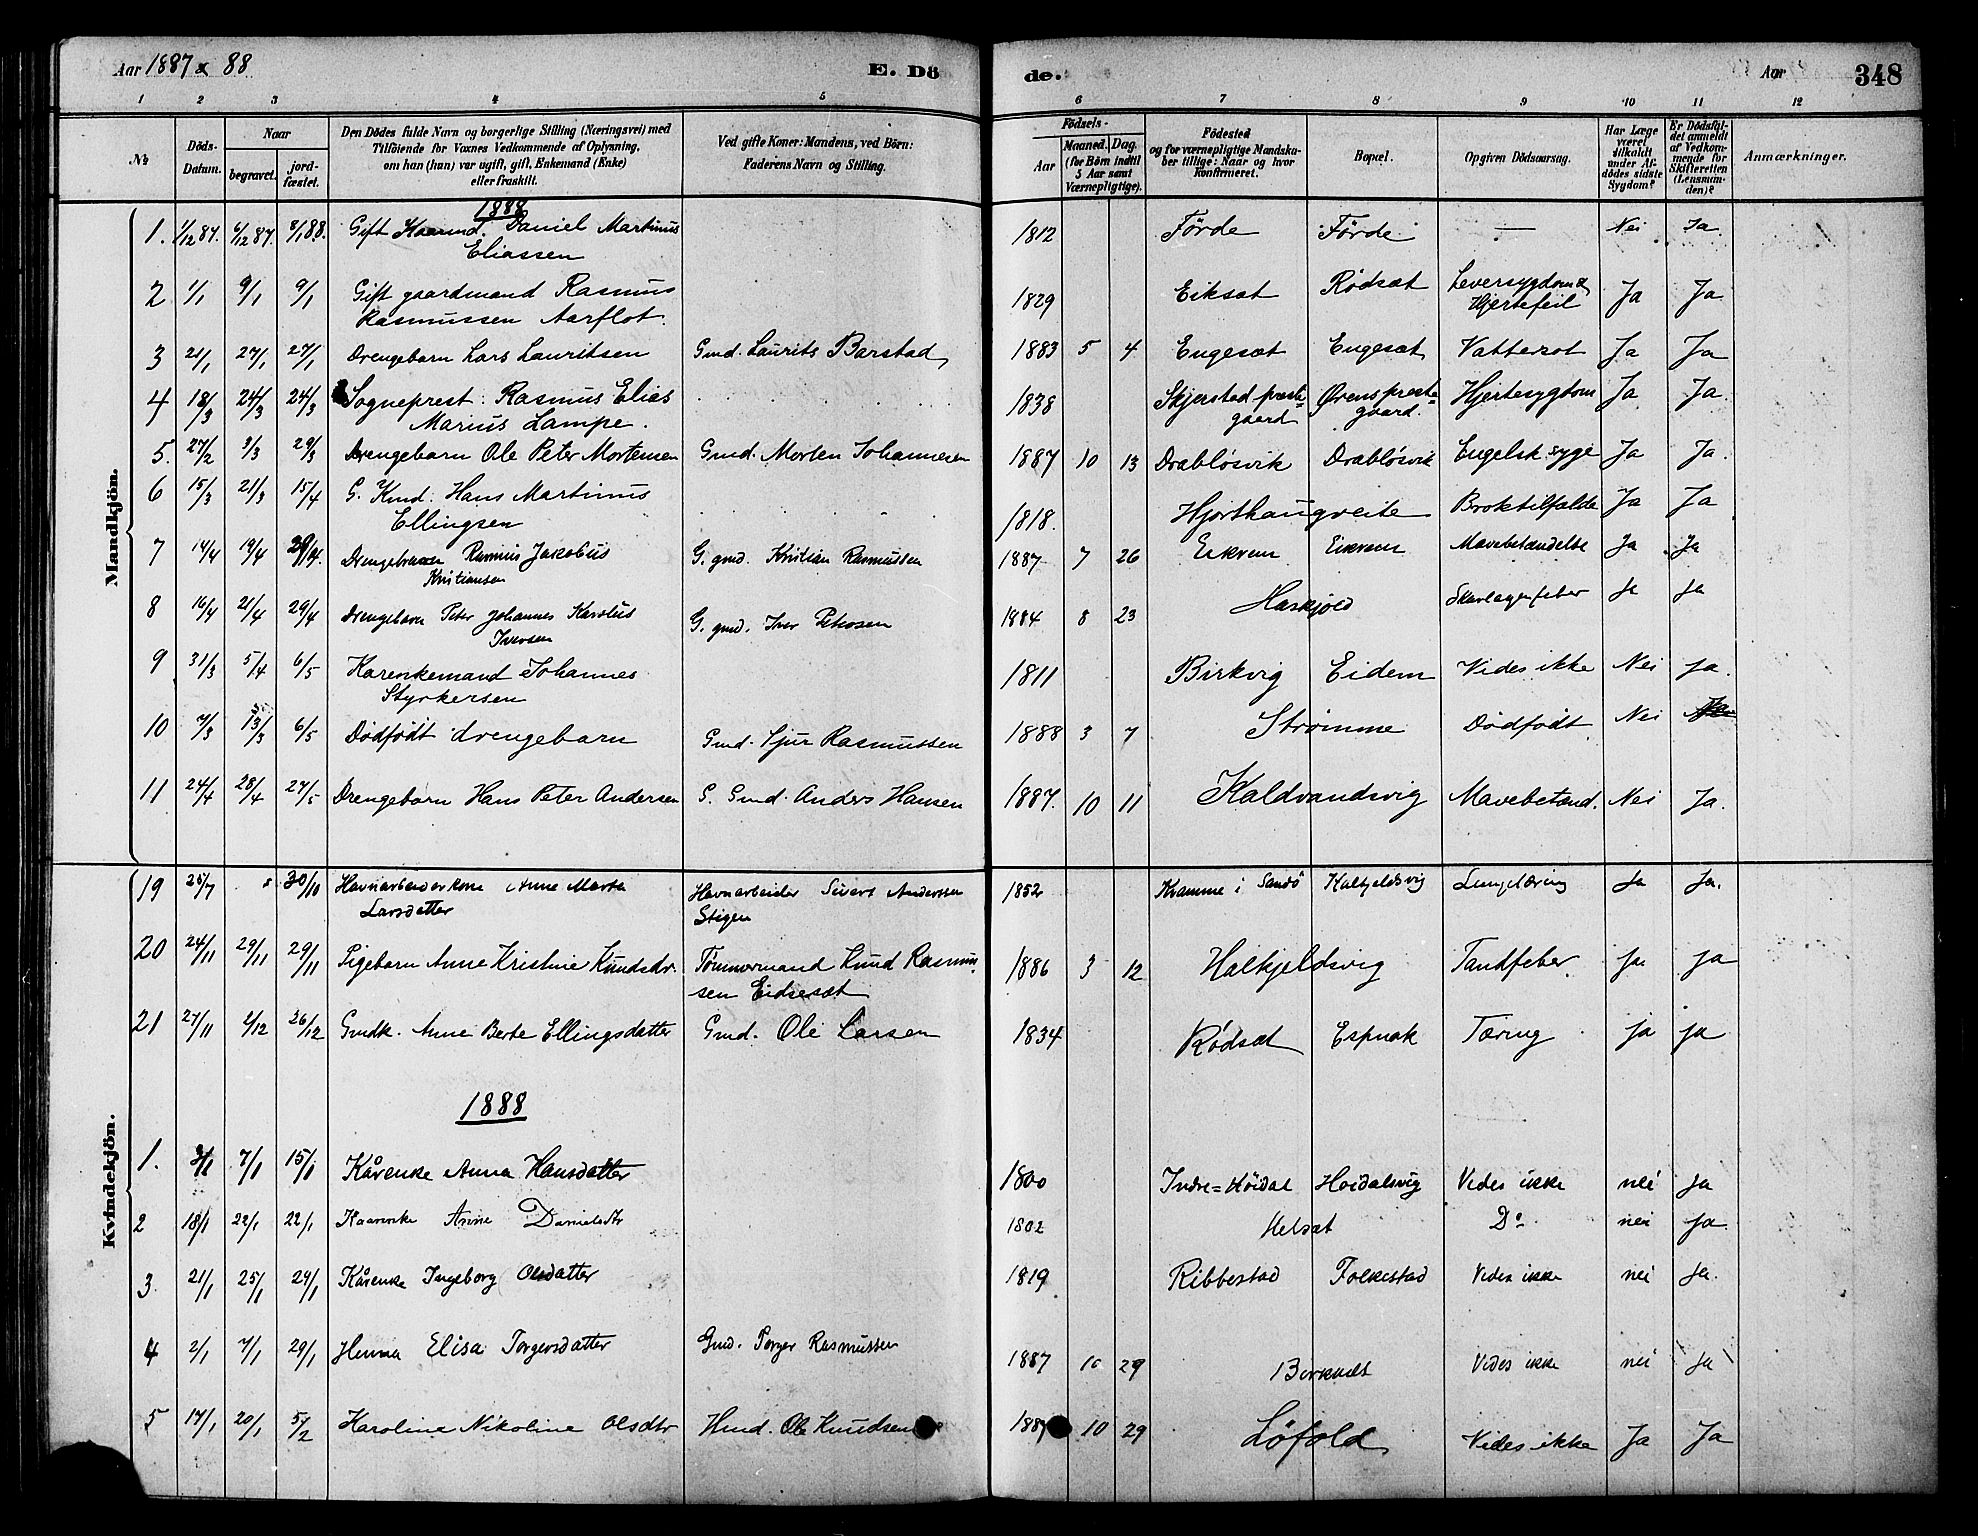 Aar 1887 & 88
E. Dö
de.
Aar
348
1 2 3 4 5 6 7 8 9 10 11 12
No
Döds-
Datum.
Naar
begravet.
jord-
fæstet.
Den Dödes fulde Navn og borgerlige Stilling (Næringsvei) med
Tilföiende for Voxnes Vedkommende af Oplysning,
om han (hun) var ugift, gift, Enkemand (Enke)
eller fraskilt.
Ved gifte Koner: Mandens, ved Börn:
Faderens Navn og Stilling.
Födsels-
Aar
Maaned. Dag.
(for Börn indtil
5 Aar samt
Værnepligtige).
Födested
og for værnepligtige Mandska-
ber tillige: Naar og hvor
Konfirmeret.
Bopæl.
Opgiven Dödsaarsag.
Har Læge
været
tilkaldt
under Af-
dödes sidste
Sygdom?
Er Dödsfal-
det anmeldt
af Vedkom-
mende for
Skifteretten
(Lensman-
den)?
Anmærkninger.
Mandkjön.
1888
1. 1/12 87. 6/12 87. 8/1 88. Gift Kaarmd. Daniel Martinus 1812 Förde Förde — Nei Ja.
Eliassen
2 1/1 9/1 9/1 Gift gaardmand Rasmus 1829 Eiksæt Rödsæt Leversygdom & Ja Ja
Rasmussen Aarflot. Hjertefeil
3 21/1 27/1 27/1 Drengebarn Lars Lauritsen Gmd. Laurits Barstad 1883 5 4 Engesæt Engesæt Vattersot Ja Ja
4 18/3 24/3 24/3 Sogneprest Rasmus Elias 1838 Skjerstad preste- Ørens preste- Hjertesygdom Ja Ja.
Marius Lampe. gaard gaard.
5. 27/2 3/3 29/3 Drengebarn Ole Peter Mortensen Gmd. Morten Johannesen 1887 10 13 Drabløsvik Drabløsvik Engelsk syge Ja Ja.
6 15/3 21/3 15/4 G. Kmd. Hans Martinus 1818. Hjorthaugveite Broktilfælde Ja Ja
Ellingsen
7 14/4 19/4 29/4. Drengebarn Rasmus Jakobus G. gmd. Kristian Rasmussen 1887 7 26 Eikrem Eikrem Mavebetændelse Ja Ja
Kristiansen
8 16/4 21/4 29/4 Drengebarn Peter Johannes Karolus G. gmd. Iver Petersen 1884 8 23 Haskjold Skarlagensfeber Ja Ja
Iversen
9 31/3 5/4 6/5 Karenkemand Johannes 1811 Birkvig Eidem Vides ikke Nei Ja.
Styrkersen
10 7/3 13/3 6/5 Dødfødt drengebarn Gmd. Sjur Rasmussen 1888 3 7 Strømme Dødfødt Nei
11 24/4 28/4 27/5 Drengebarn Hans Peter Andersen G. Gmd. Anders Hansen 1887. 10 11 Kaldvandsvig Mavebetænd. Nei Ja.
Kvindekjön.
19 25/7 30/10 Havnarbeiderkone Anne Marta Havnarbeider Sivert Anderssen 1852 Kvamme i Sandö Halkjeldsvig Lungetæring Ja Ja.
Larsdatter Stigen
20 24/11 29/11 29/11 Pigebarn Anne Kristine Knudsdr. Tømmermand Knud Rasmus- 1886 3 12 Halkjeldsvig Tandfeber Ja Ja
sen Eidsesæt
21 27/11 2/12 26/12 Gmdk. Anne Berte Ellingsdatter Gmd. Ole Larsen 1834 Rødsæt Espnak Tæring ja ja
1888
1. 7/1 15/1 Kårenke Anna Hansdatter 1800 Indre=Höidal Hoidalsvig Vides ikke nei ja
2 18/1 22/1 22/1 Kaarenke Anne Danielsdtr 1802 Helsæt Do nei Ja.
3. 21/1 25/1 29/1 Kårenke Ingeborg Olsdatter 1819 Ribbestad Folkestad Vides ikke nei Ja.
4 2/1 7/1 29/1 Henna Elisa Torgersdatter Gmd. Torger Rasmussen 1887 10 29 Vides ikke nei Ja
5 14/1 20/1 5/2 Karoline Nikoline Olsdtr Hmd. Ole Knudsen 1887 10 29 Löfold Vides ikke Ja Ja